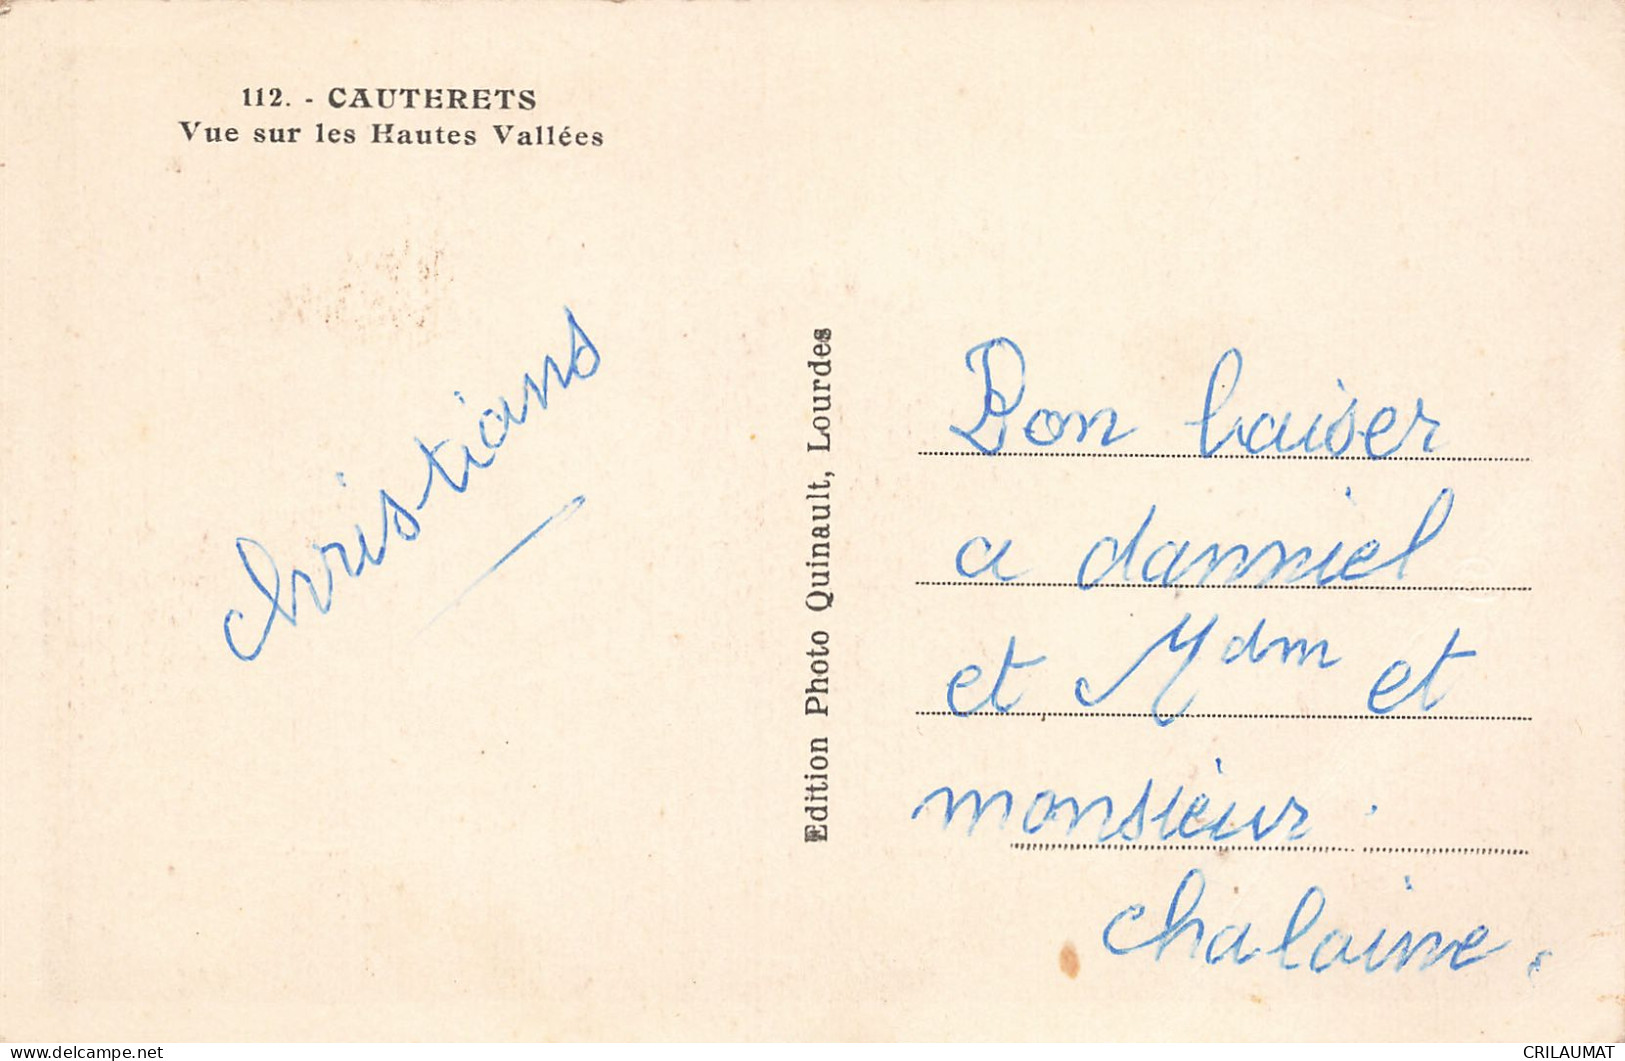 112. - CAUTERETS
Vue sur les Hautes Vallées
christians
Edition Photo Quinault, Lourdes
Bon baiser
a danniel
et Mdm et
monsieur
chalaine.
delcampe.net
CRILAUMAT